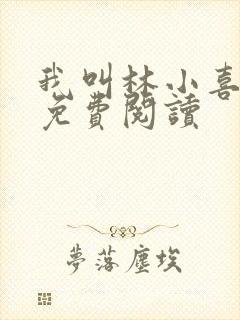 我叫林小喜
免費閱讀
夢落塵埃